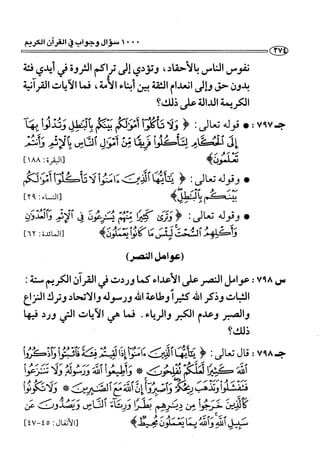 ١٠٠٠ سؤال وجواب في القرآن الكريم
٣٧٤
نفوس الناس بالأحقاد، وتؤدي إلى تراكم الثروة في أيدي فئة
بدون حق وإلى انعدام الثقة بين أبناء الأمة، فما الآيات القرآنية
الكريمة الدالة على ذلك؟
جـ٧٩٧: • قوله تعالى: ﴿ وَلَا تَأْكُلُوٓا۟ أَمْوَٰلَكُم بَيْنَكُم بِٱلْبَٰطِلِ وَتُدْلُوا۟ بِهَآ
إِلَى ٱلْحُكَّامِ لِتَأْكُلُوا۟ فَرِيقًا مِّنْ أَمْوَٰلِ ٱلنَّاسِ بِٱلْإِثْمِ وَأَنتُمْ
تَعْلَمُونَ﴾ [البقرة: ١٨٨]
• وقوله تعالى: ﴿ يَٰٓأَيُّهَا ٱلَّذِينَ ءَامَنُوا۟ لَا تَأْكُلُوٓا۟ أَمْوَٰلَكُم
بَيْنَكُم بِٱلْبَٰطِلِ﴾ [النساء: ٢٩]
• وقوله تعالى: ﴿ وَتَرَىٰ كَثِيرًا مِّنْهُمْ يُسَٰرِعُونَ فِى ٱلْإِثْمِ وَٱلْعُدْوَٰنِ
وَأَكْلِهِمُ ٱلسُّحْتَ لَبِئْسَ مَا كَانُوا۟ يَعْمَلُونَ﴾ [المائدة: ٦٢]
(عوامل النصر)
س ٧٩٨: عوامل النصر على الأعداء كما وردت في القرآن الكريم ستة:
الثبات وذكر الله كثيراً وطاعة الله ورسوله والاتحاد وترك النزاع
والصبر وعدم الكبر والرياء. فما هي الآيات التي ورد فيها
ذلك؟
جـ٧٩٨: قال تعالى: ﴿ يَٰٓأَيُّهَا ٱلَّذِينَ ءَامَنُوٓا۟ إِذَا لَقِيتُمْ فِئَةً فَٱثْبُتُوا۟ وَٱذْكُرُوا۟
ٱللَّهَ كَثِيرًا لَّعَلَّكُمْ تُفْلِحُونَ * وَأَطِيعُوا۟ ٱللَّهَ وَرَسُولَهُۥ وَلَا تَنَٰزَعُوا۟
فَتَفْشَلُوا۟ وَتَذْهَبَ رِيحُكُمْ وَٱصْبِرُوٓا۟ إِنَّ ٱللَّهَ مَعَ ٱلصَّٰبِرِينَ * وَلَا تَكُونُوا۟
كَٱلَّذِينَ خَرَجُوا۟ مِن دِيَٰرِهِم بَطَرًا وَرِئَآءَ ٱلنَّاسِ وَيَصُدُّونَ عَن
سَبِيلِ ٱللَّهِ وَٱللَّهُ بِمَا يَعْمَلُونَ مُحِيطٌ﴾ [الأنفال: ٤٥-٤٧]